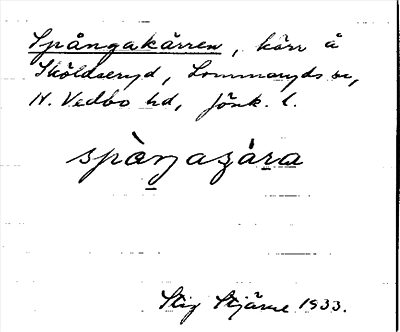 Spångakärren, kärr å
Sköldseryd, Lommaryds sn,
N. Vedbo hd, Jönk. l.
spàŋaɕära
Stig Stjärne 1933.